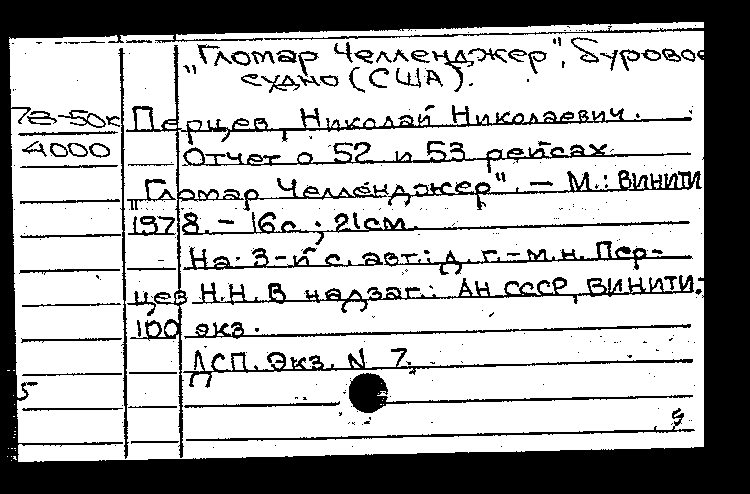 „Гломар Челленджер", буровое
судно (США).
78-50к Перцев, Николай Николаевич.
4000 Отчет о 52 и 53 рейсах
„Гломар Челленджер". — М.: ВИНИТИ
1978. - 16с.; 21см.
На 3-й с. авт.: д. г.-м.н. Пер-
цев Н.Н. В надзаг.: АН СССР, ВИНИТИ.-
100 экз.
ДСП. Экз. N 7.
5